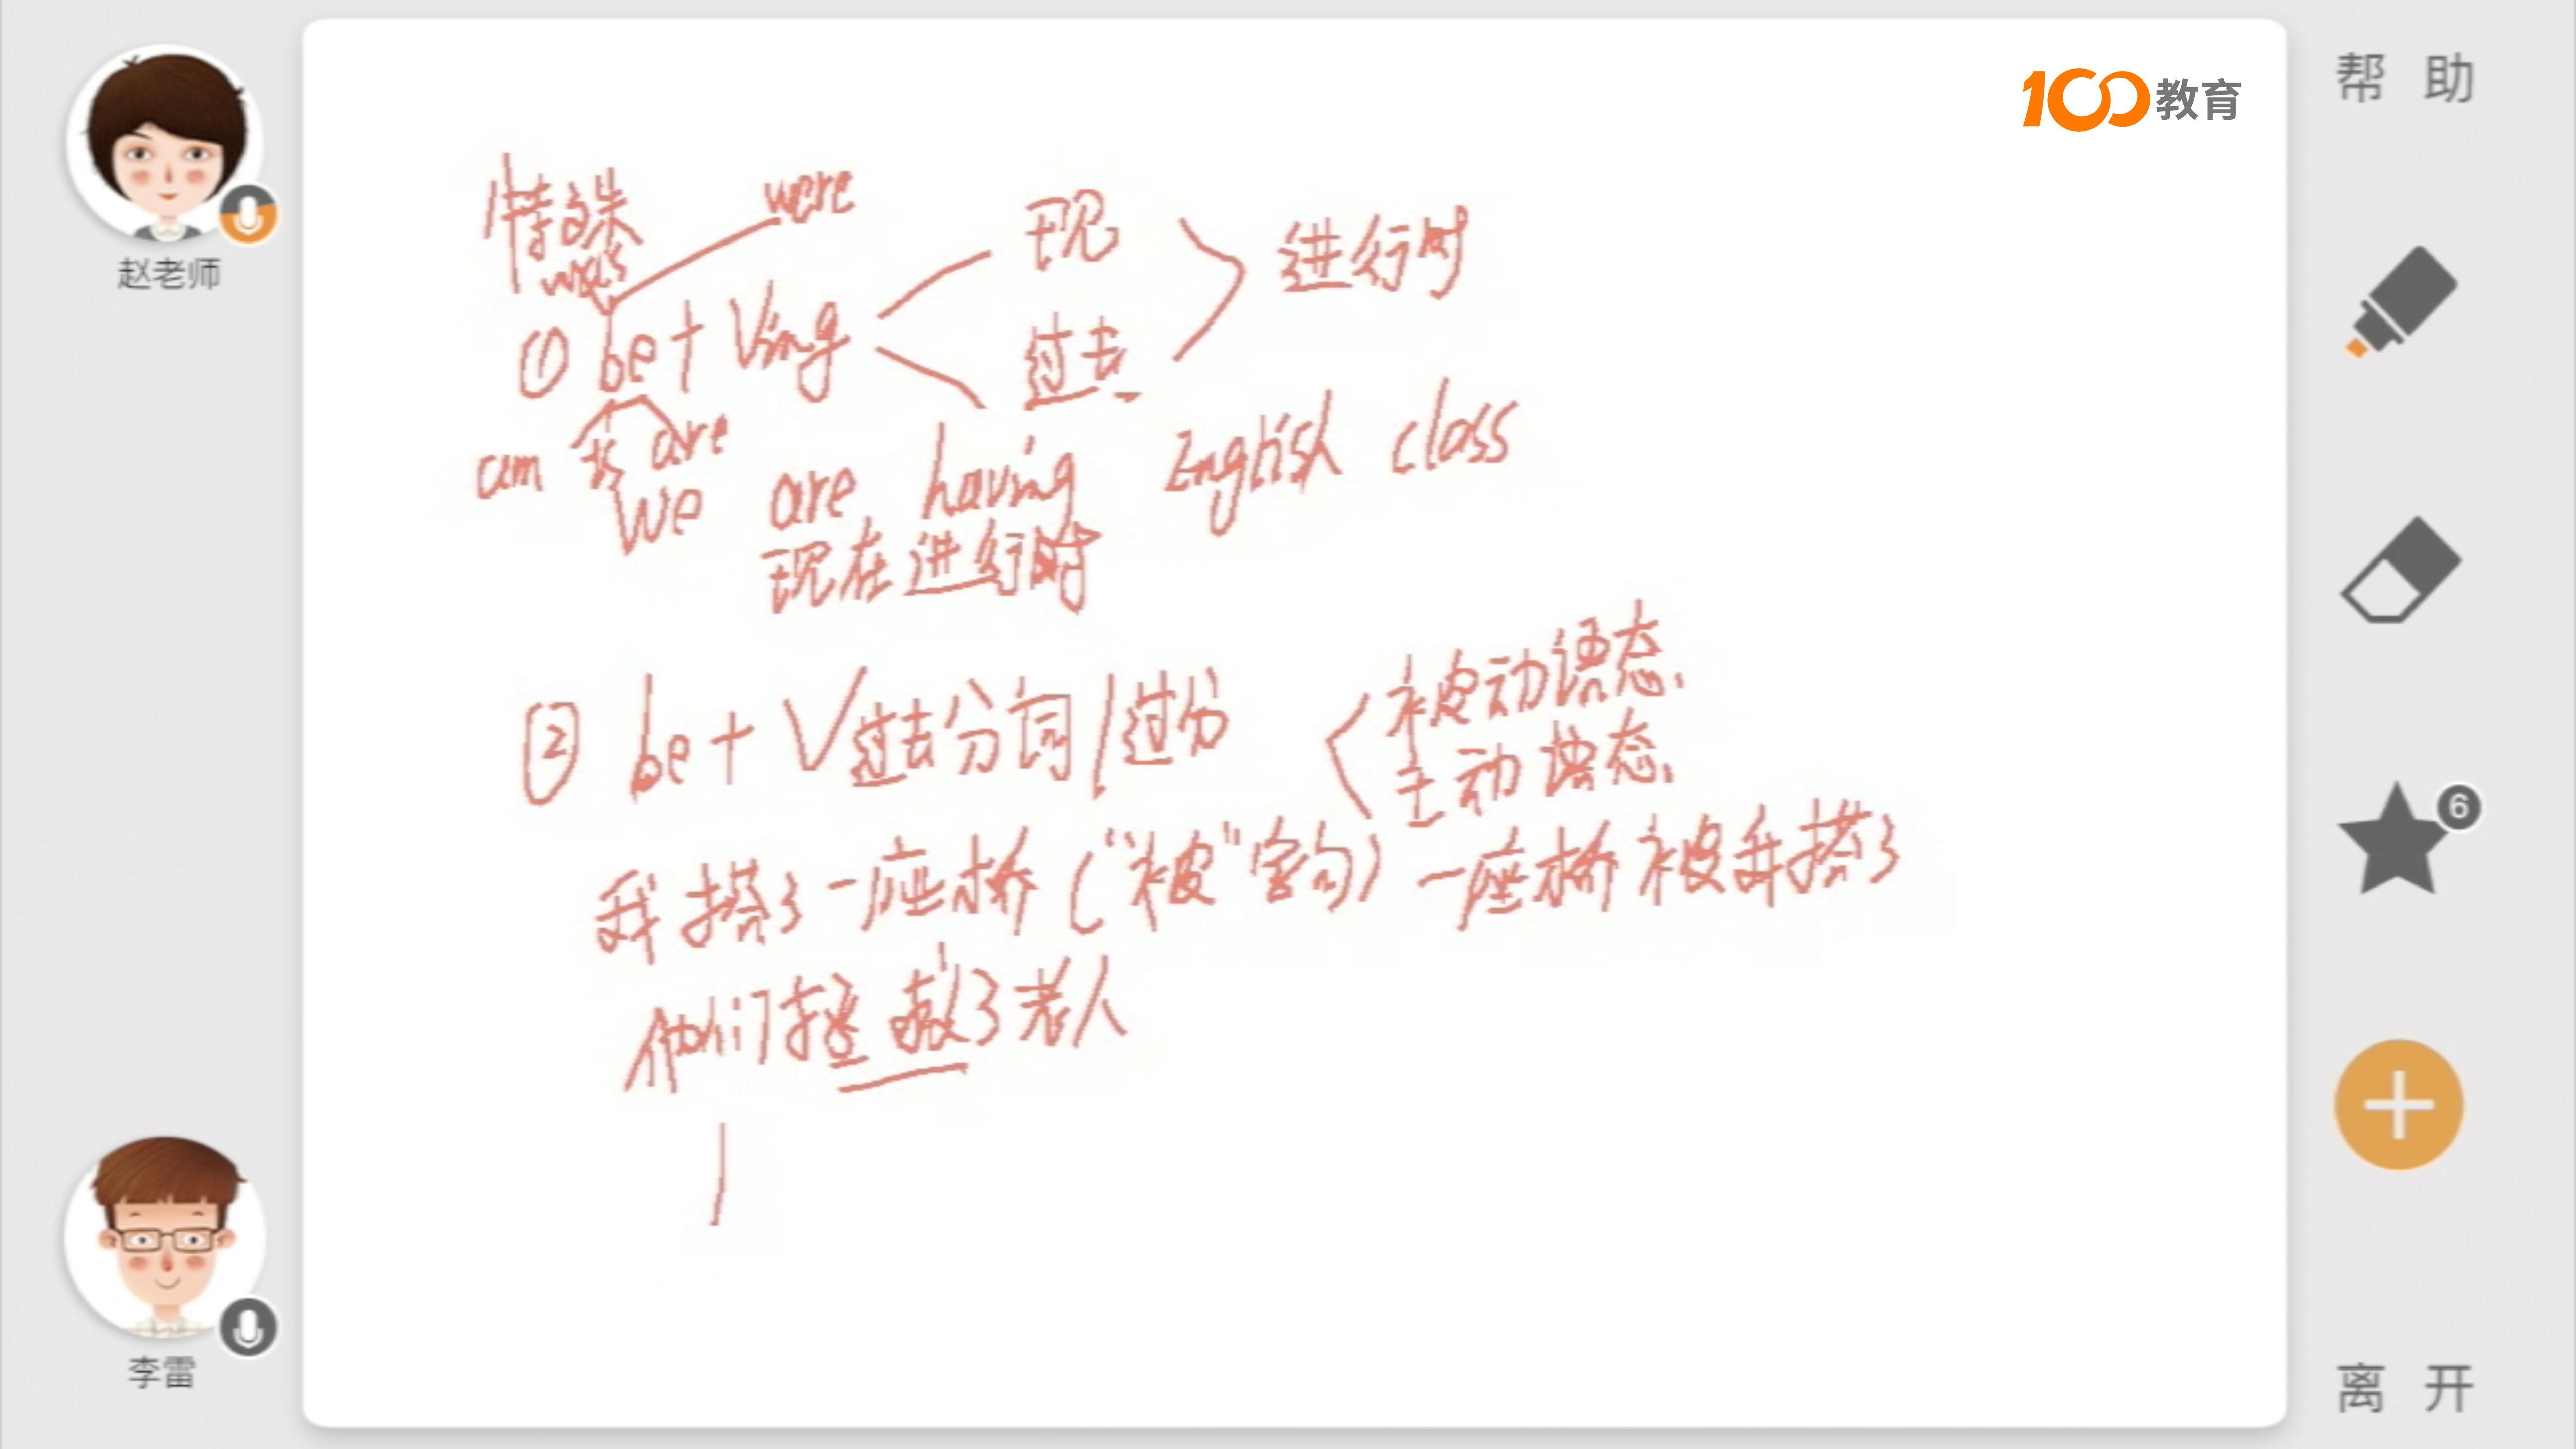 100教育
帮 助
赵老师
特殊 were
was
现
进行时
① be + Ving
过去
am is are
We are having English class
现在进行时
② be + V过去分词/过分
被动语态
主动语态
我搭了一座桥 ("被"字句) 一座桥被我搭了
他们拯救了老人
6
李雷
离 开